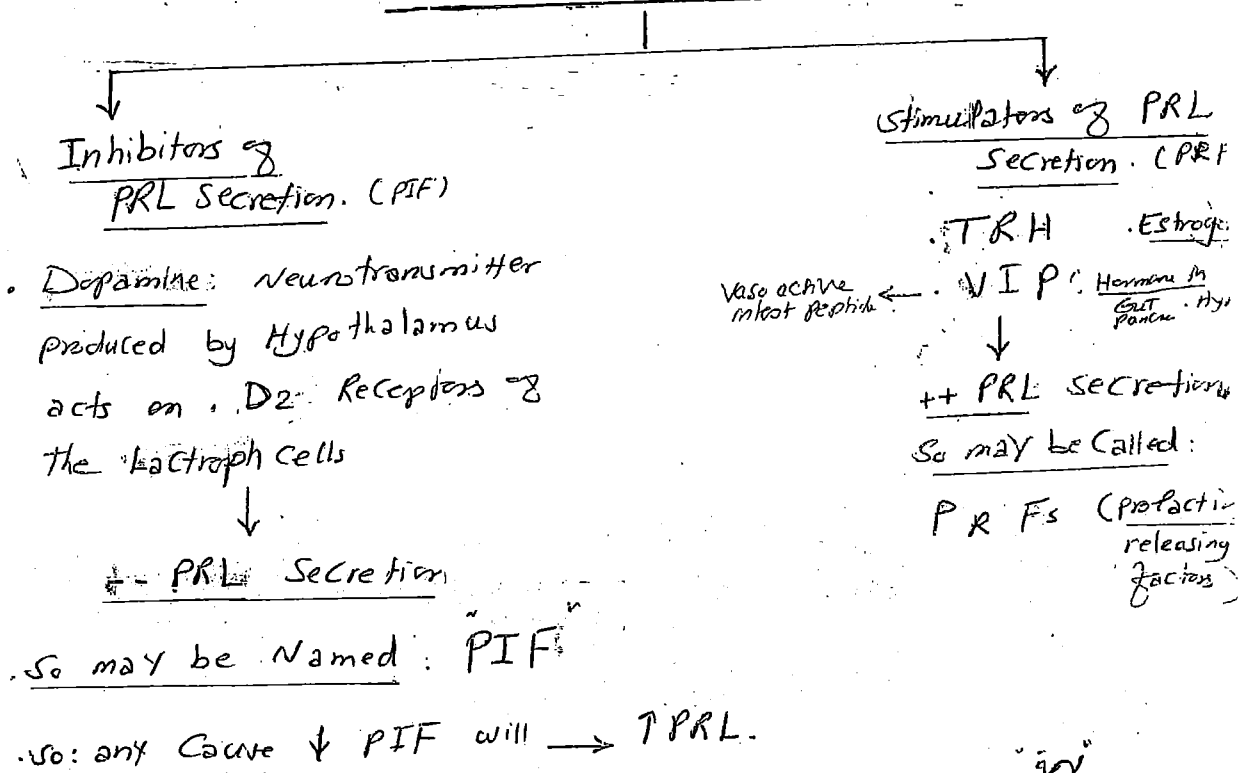 Inhibitors of
PRL Secretion. (PIF)
. Dopamine: Neurotransmitter
produced by Hypothalamus
acts on . D2 Receptors of
the Lactroph cells
-- PRL Secretion
.So may be Named : "PIF"
.so: any Cause ↓ PIF will → ↑ PRL.
Stimulators of PRL
Secretion. (PRF
. TRH . Estroge
Vaso active
intest Peptide ← . VIP : Hormone in
GUT . Hy
Pancre
++ PRL secretion
So may be Called:
P R Fs (prolacti
releasing
factors)